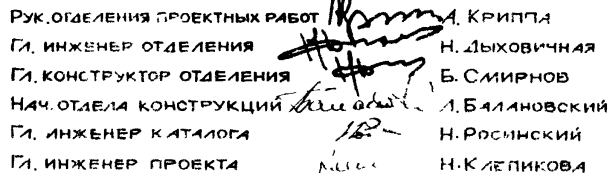 РУК. ОТДЕЛЕНИЯ ПРОЕКТНЫХ РАБОТ А. КРИППА
ГЛ. ИНЖЕНЕР ОТДЕЛЕНИЯ Н. ДЫХОВИЧНАЯ
ГЛ. КОНСТРУКТОР ОТДЕЛЕНИЯ Б. СМИРНОВ
НАЧ. ОТДЕЛА КОНСТРУКЦИЙ Л. БАЛАНОВСКИЙ
ГЛ. ИНЖЕНЕР КАТАЛОГА Н. РОСИНСКИЙ
ГЛ. ИНЖЕНЕР ПРОЕКТА Н. КЛЕПИКОВА